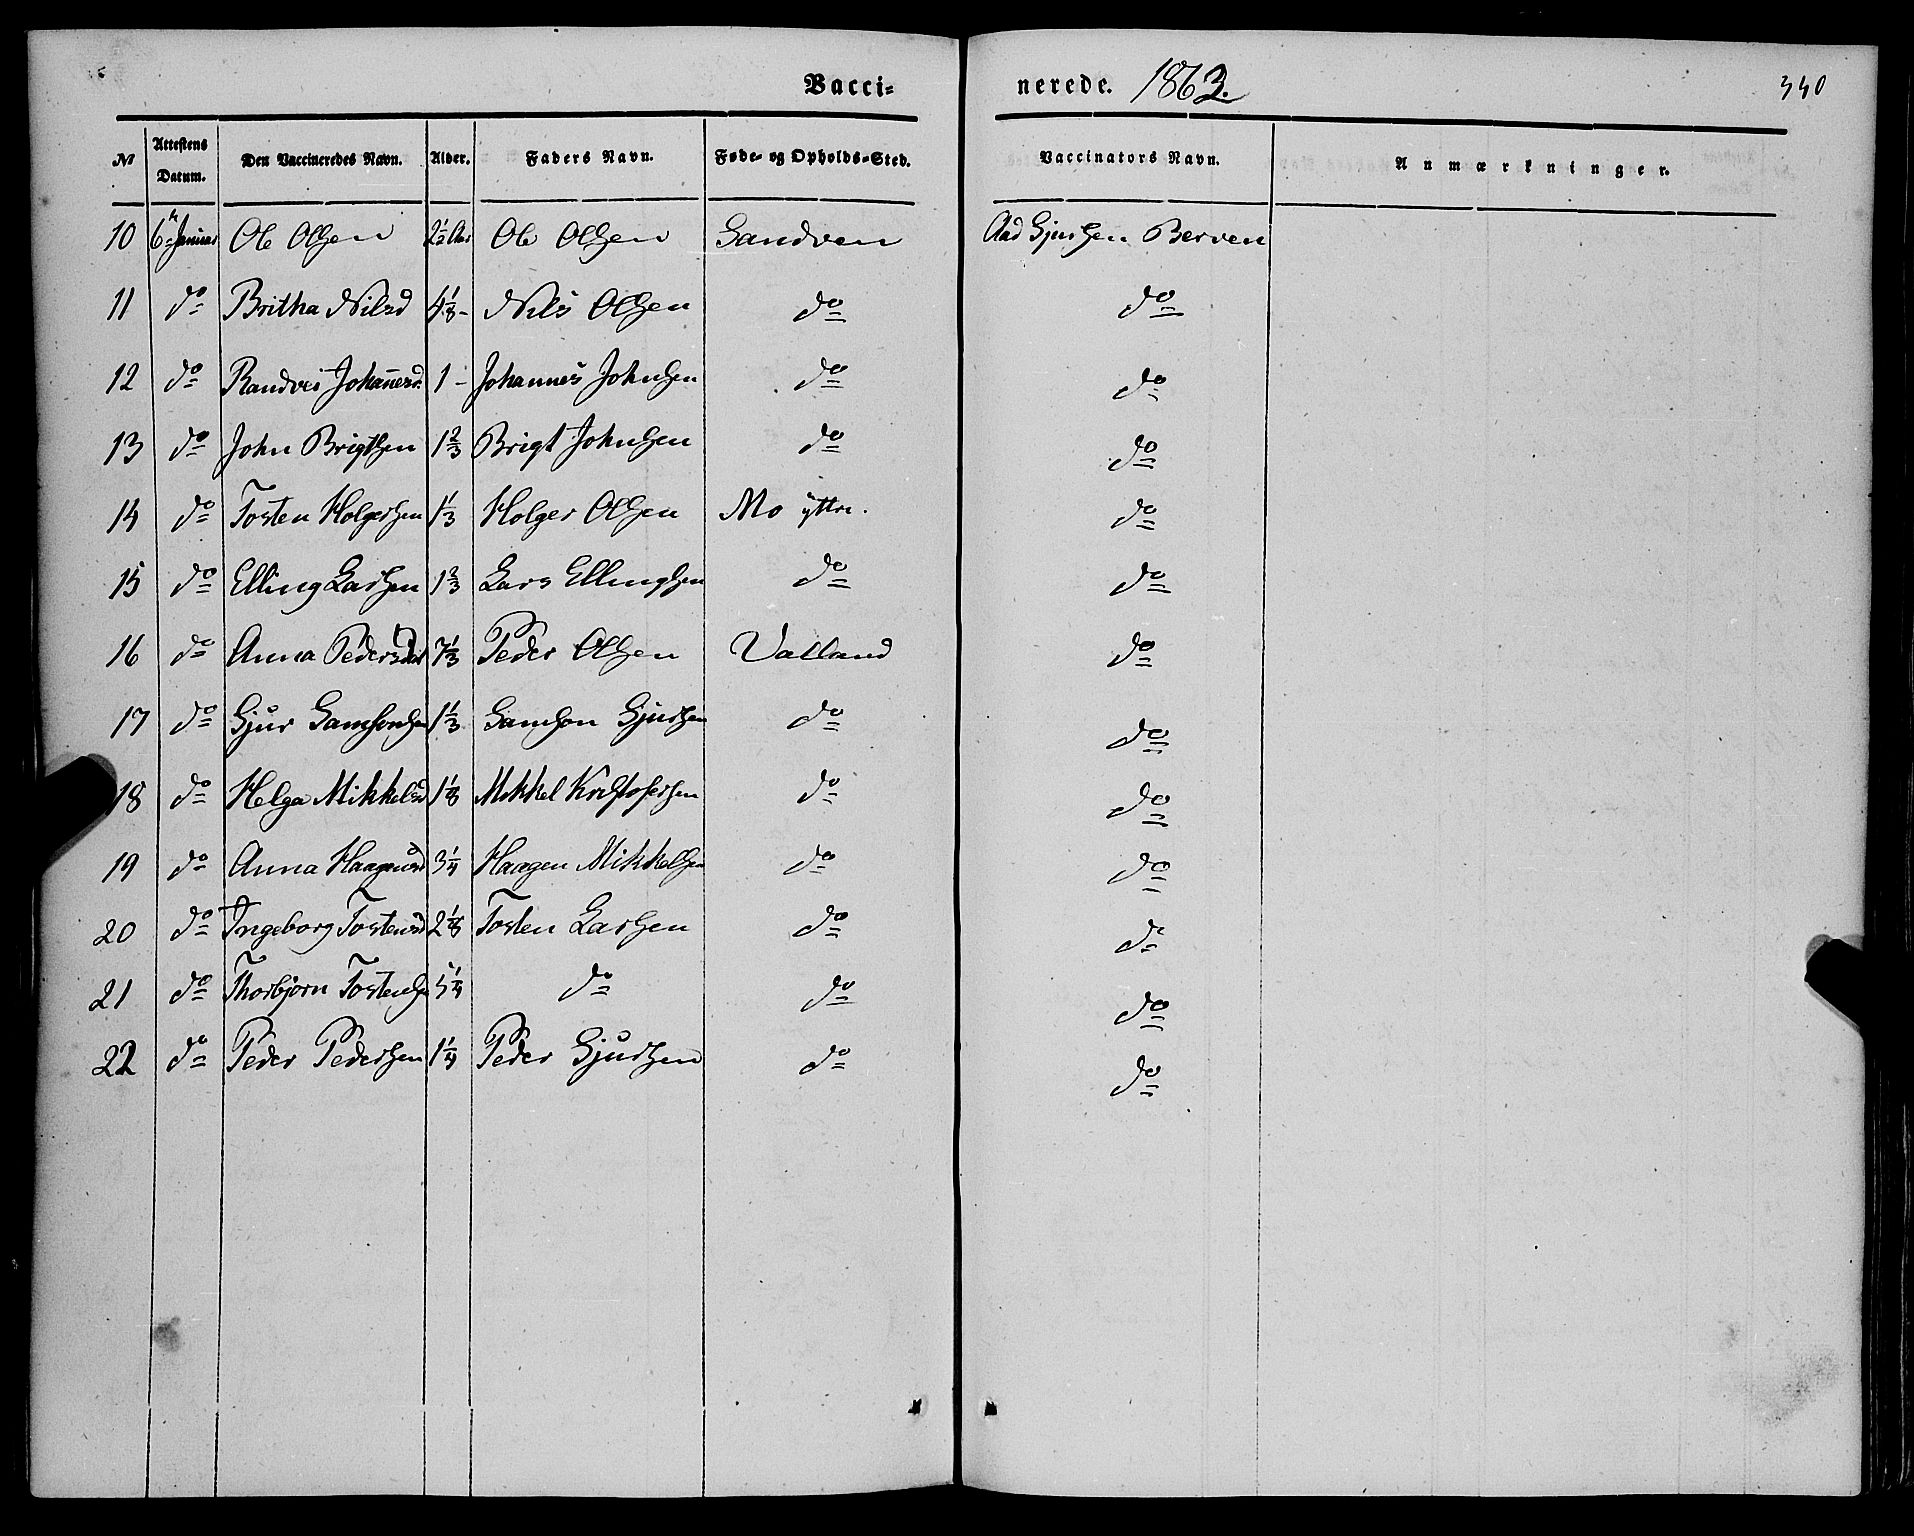 Vacci- nerede. 1863. 340
№ Attestens Datum. Den Vaccineredes Navn. Alder. Faders Navn. Føde- og Opholds-Sted. Vaccinators Navn. Anmærkninger.
10 6te Januar Ole Olsen 2½ Aar Ole Olsen Sandven Aad Sjursen Berven
11 do Britha Nilsd 4⅓ - Nils Olsen do do
12 do Randvei Johannesd. 1 - Johannes Johnsen do do
13 do John Brigtsen 1⅔ Brigt Johnsen do do
14 do Tosten Holgersen 1⅓ Holger Olsen Mo yttre. do
15 do Elling Larsen 1⅔ Lars Ellingsen do do
16 do Anna Pedersdat 7⅓ Peder Olsen Vatland do
17 do Sjur Samsonsen 1⅓ Samson Sjursen do do
18 do Helga Mikkelsd 1⅛ Mikkel Kristofersen do do
19 do Anna Haagensd 3¼ Haagen Mikkelsen do do
20 do Ingeborg Tostensd 2⅛ Tosten Larsen do do
21 do Thorbjørn Tostensen 5¼ do do do
22 do Peder Pedersen 1¼ Peder Sjursen do do